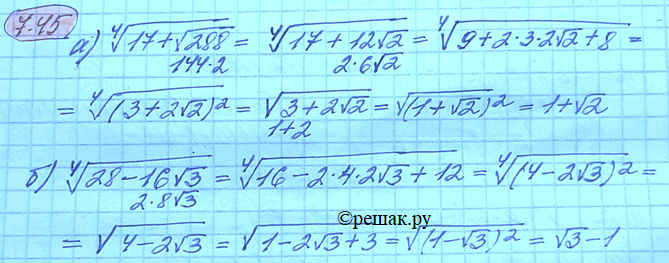 7.45
а) ∜(17+√288) = ∜(17+12√2) = ∜(9+2·3·2√2+8) =
144·2 2·6√2
= ∜((3+2√2)²) = √(3+2√2) = √((1+√2)²) = 1+√2
1+2
б) ∜(28−16√3) = ∜(16−2·4·2√3+12) = ∜((4−2√3)²) =
2·8√3
©решак.ру
= √(4−2√3) = √(1−2√3+3) = √((1−√3)²) = √3−1